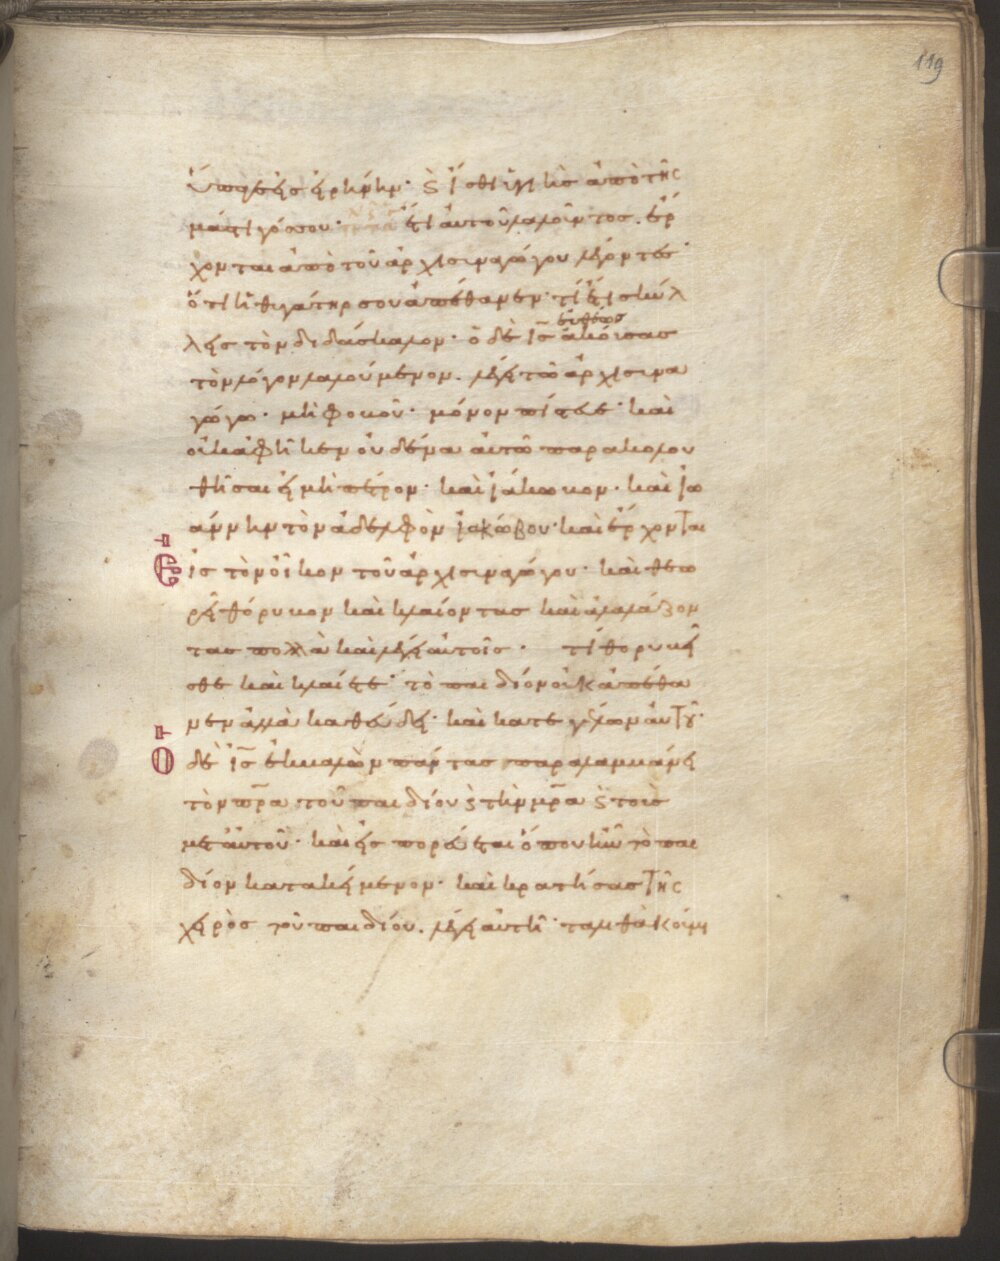 119
ὕπαγε εἰς εἰρήνην· ϛ ἴσθι ὑγιὴς ἀπὸ τῆς
μάστιγός σου· ἔτι αὐτοῦ λαλοῦντος. ἔρ
χονται ἀπὸ τοῦ ἀρχισυναγώγου λέγοντες
ὅτι ἡ θυγάτηρ σου ἀπέθανεν· τί ἔτι σκύλ
λεις τὸν διδάσκαλον· ὁ δὲ ις εὐθέως ἀκούσας
τὸν λόγον λαλούμενον. λέγει τῶ ἀρχισυνα
γώγω· μὴ φοβοῦ· μόνον πίστευε· καὶ
οὐκ ἀφῆκεν οὐδένα αὐτῶ παρακολου
θῆσαι εἰ μὴ πέτρον· καὶ ἰάκωβον· καὶ ἰω
άννην τὸν ἀδελφὸν ἰακώβου· καὶ ἔρχονται
Εἰς τὸν οἶκον τοῦ ἀρχισυναγώγου· καὶ θεω
ρεῖ θόρυβον καὶ κλαίοντας καὶ ἀλαλάζον
τας πολλὰ καὶ λέγει αὐτοῖς· τί θορυβεῖ
σθε καὶ κλαίετε· τὸ παιδίον οὐκ ἀπέθα
νεν ἀλλὰ καθεύδει· καὶ κατεγέλων αὐτοῦ·
Ὁ δὲ ις ἐκβαλὼν πάντας παραλαμβάνει
τὸν πρα τοῦ παιδίου ϛ τὴν μρα ϛ τοὺς
μετ αὐτοῦ· καὶ εἰσπορεύεται ὅπου ἦν τὸ παι
δίον κατακείμενον· καὶ κρατήσας τῆς
χειρὸς τοῦ παιδίου. λέγει αὐτῆ· ταλιθὰ κούμι